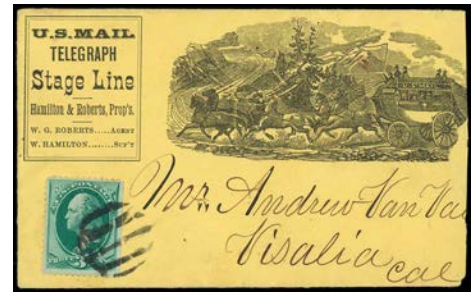 U.S. MAIL
TELEGRAPH
Stage Line
Hamilton & Roberts, Prop's.
W. G. ROBERTS.....AGENT
W. HAMILTON........SUP'T
U.S. POSTAGE
Mr. Andrew Van Va
Visalia
Cal